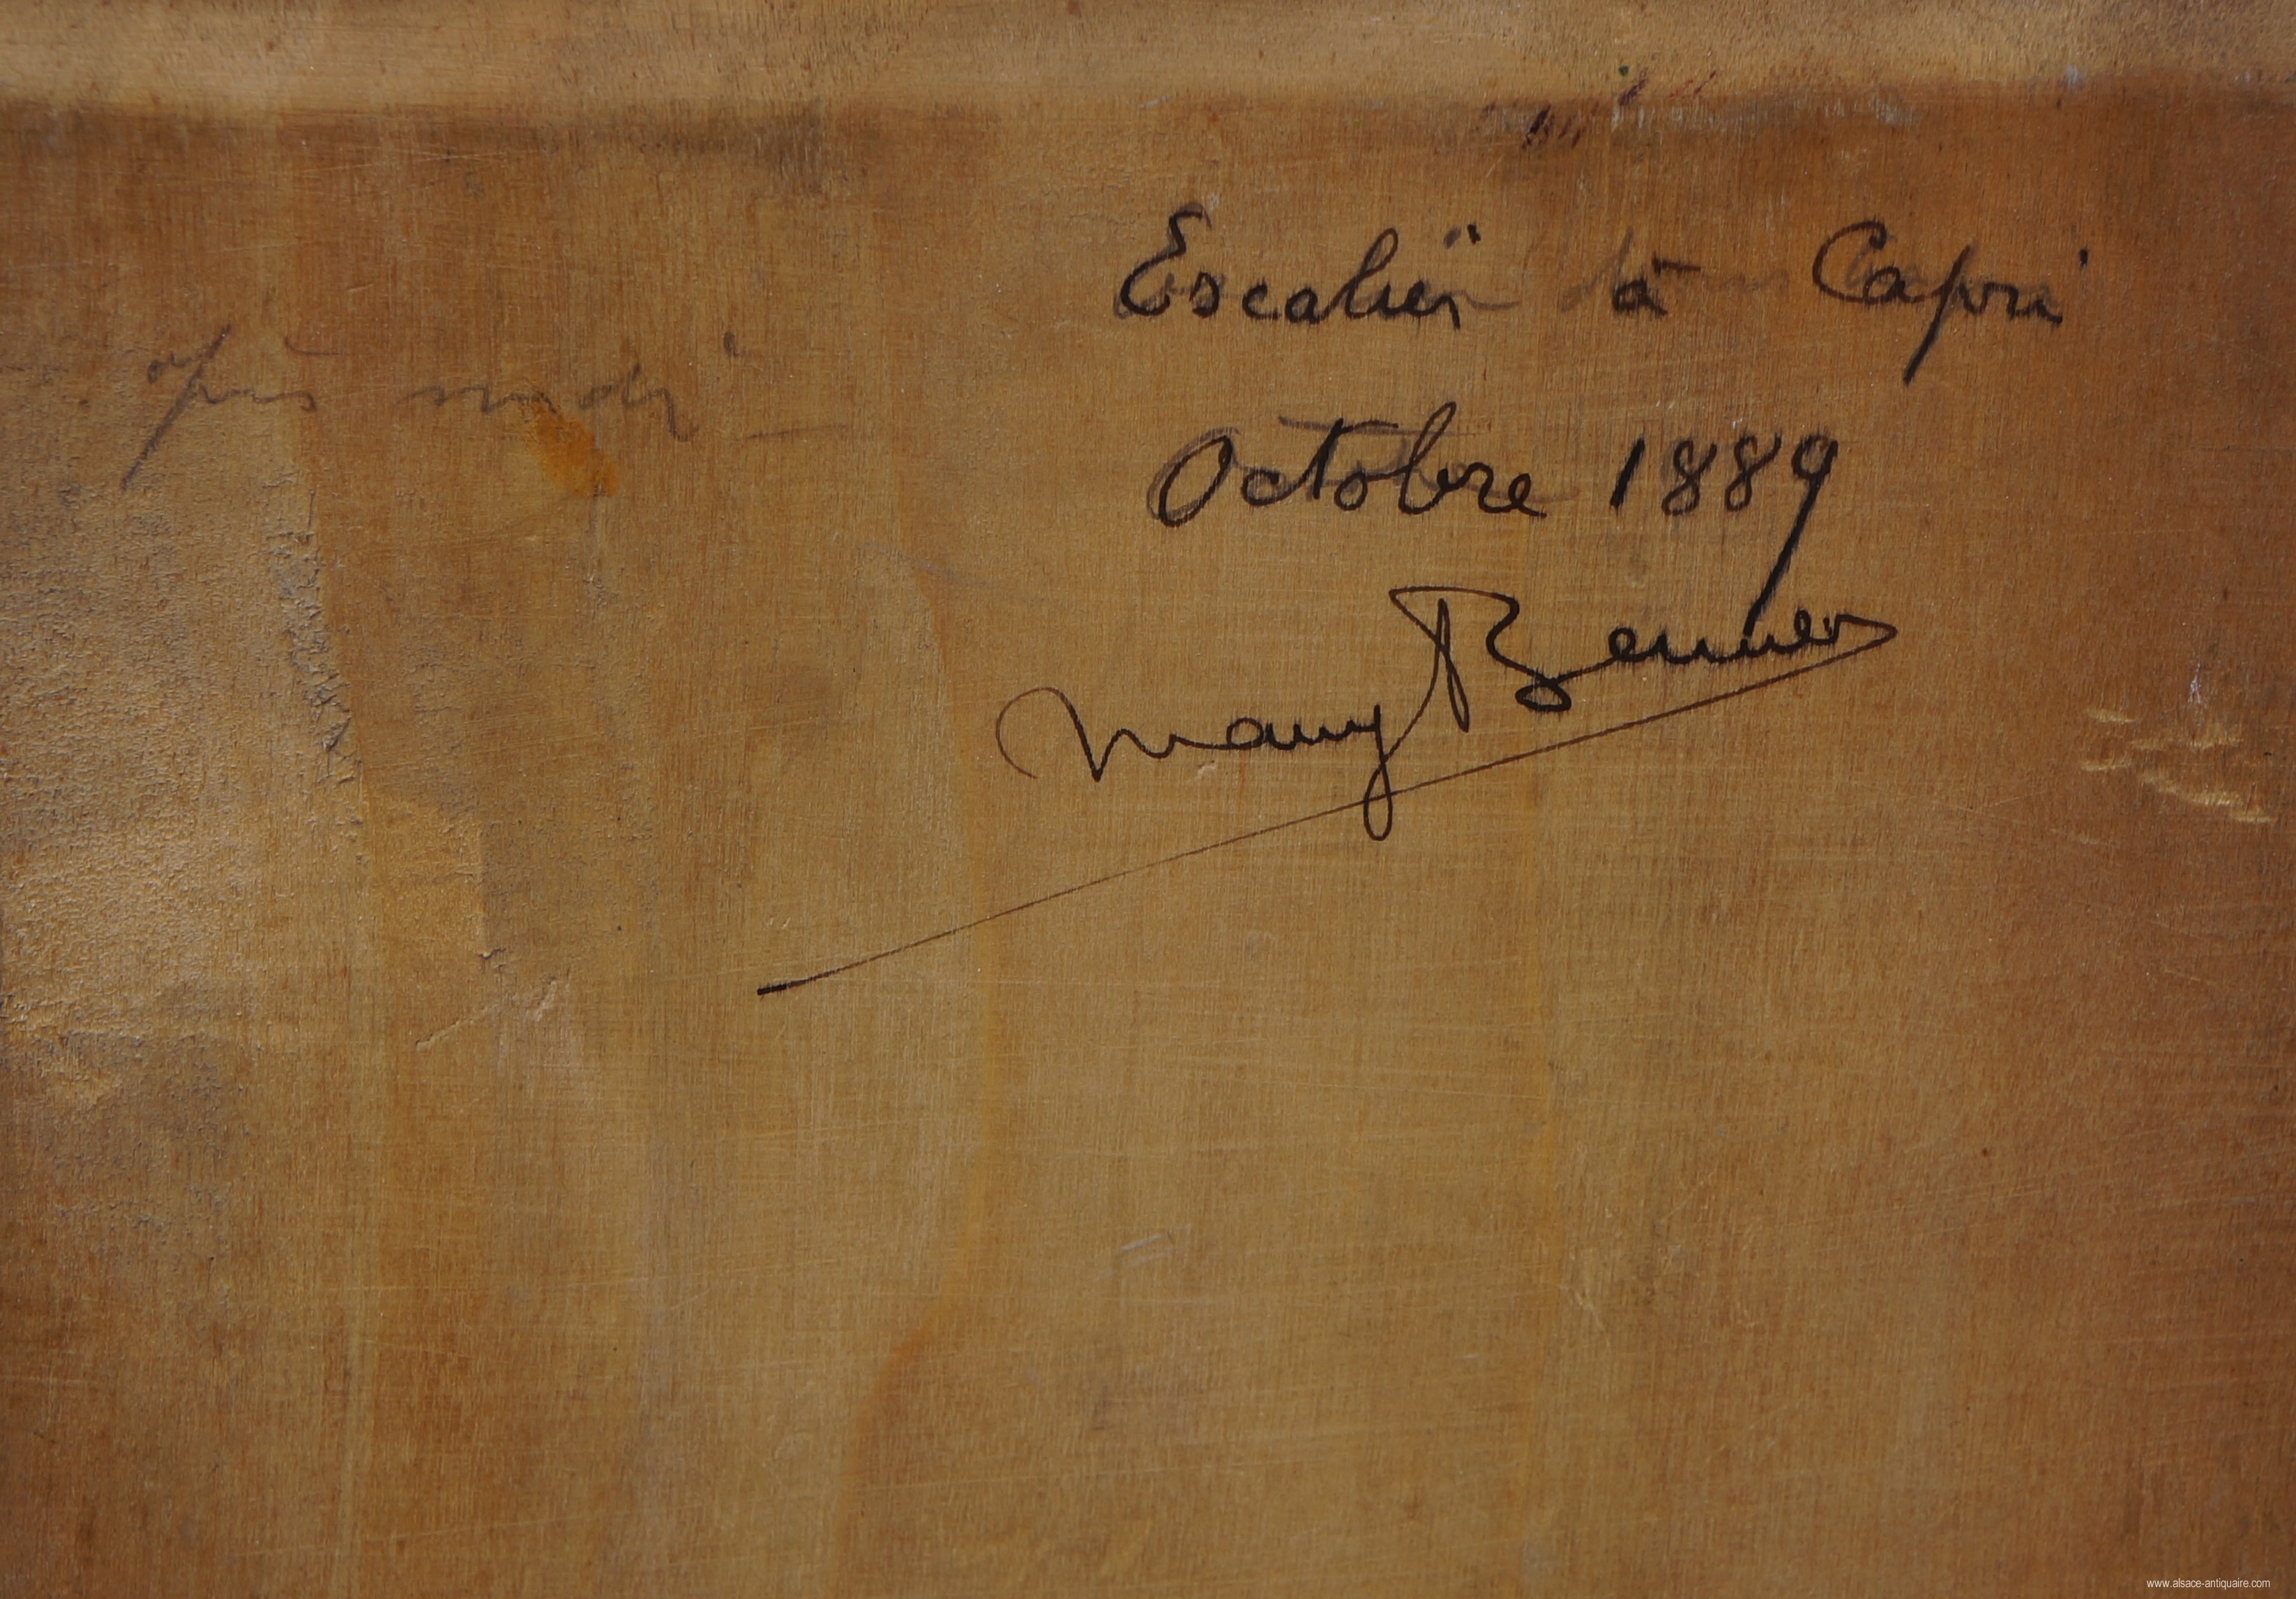 Escalier à Capri
après midi —
Octobre 1889
Many Benner
www.alsace-antiquaire.com